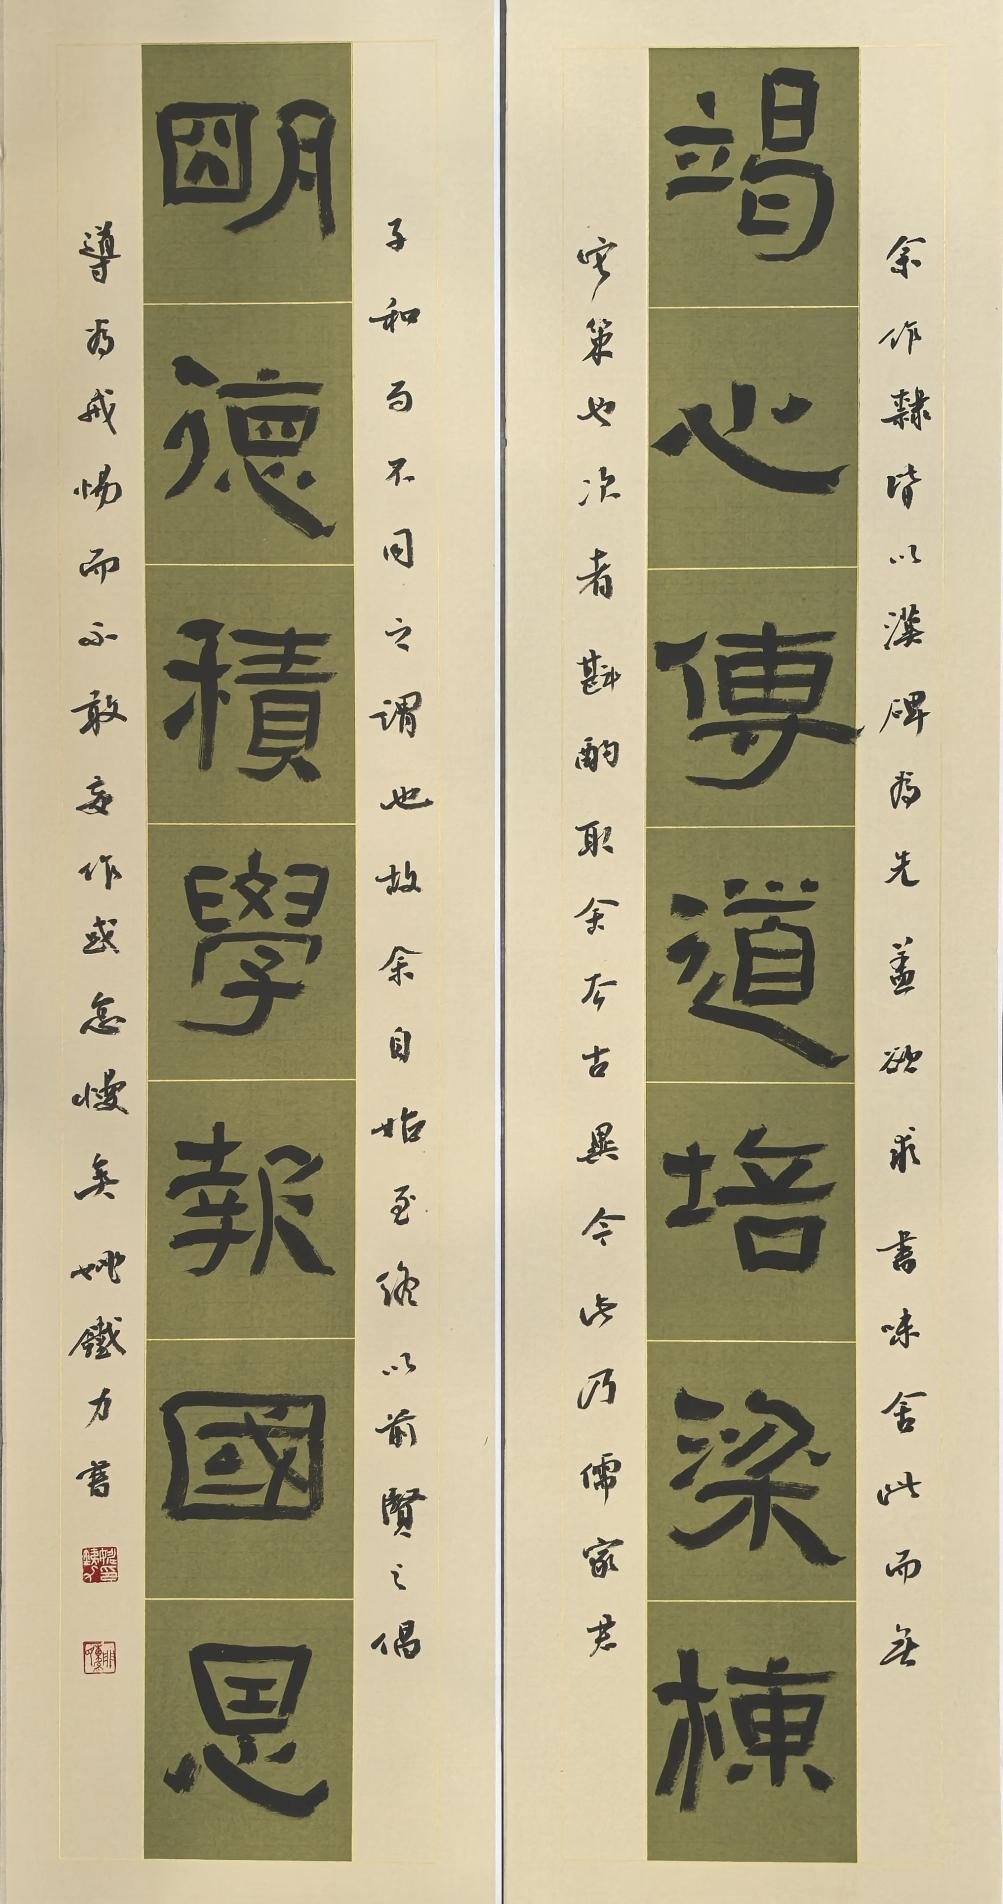 竭心傳道培梁棟
余作隸皆以漢碑為先蓋欲求書味舍此而無
它策也次者斟酌取舍夲古異今此乃儒家君
朙德積學報國恩
子和而不同之謂也故余自始至終以前賢之倡
導為戒惕而不敢妄作或怠慢矣姚鐵力書